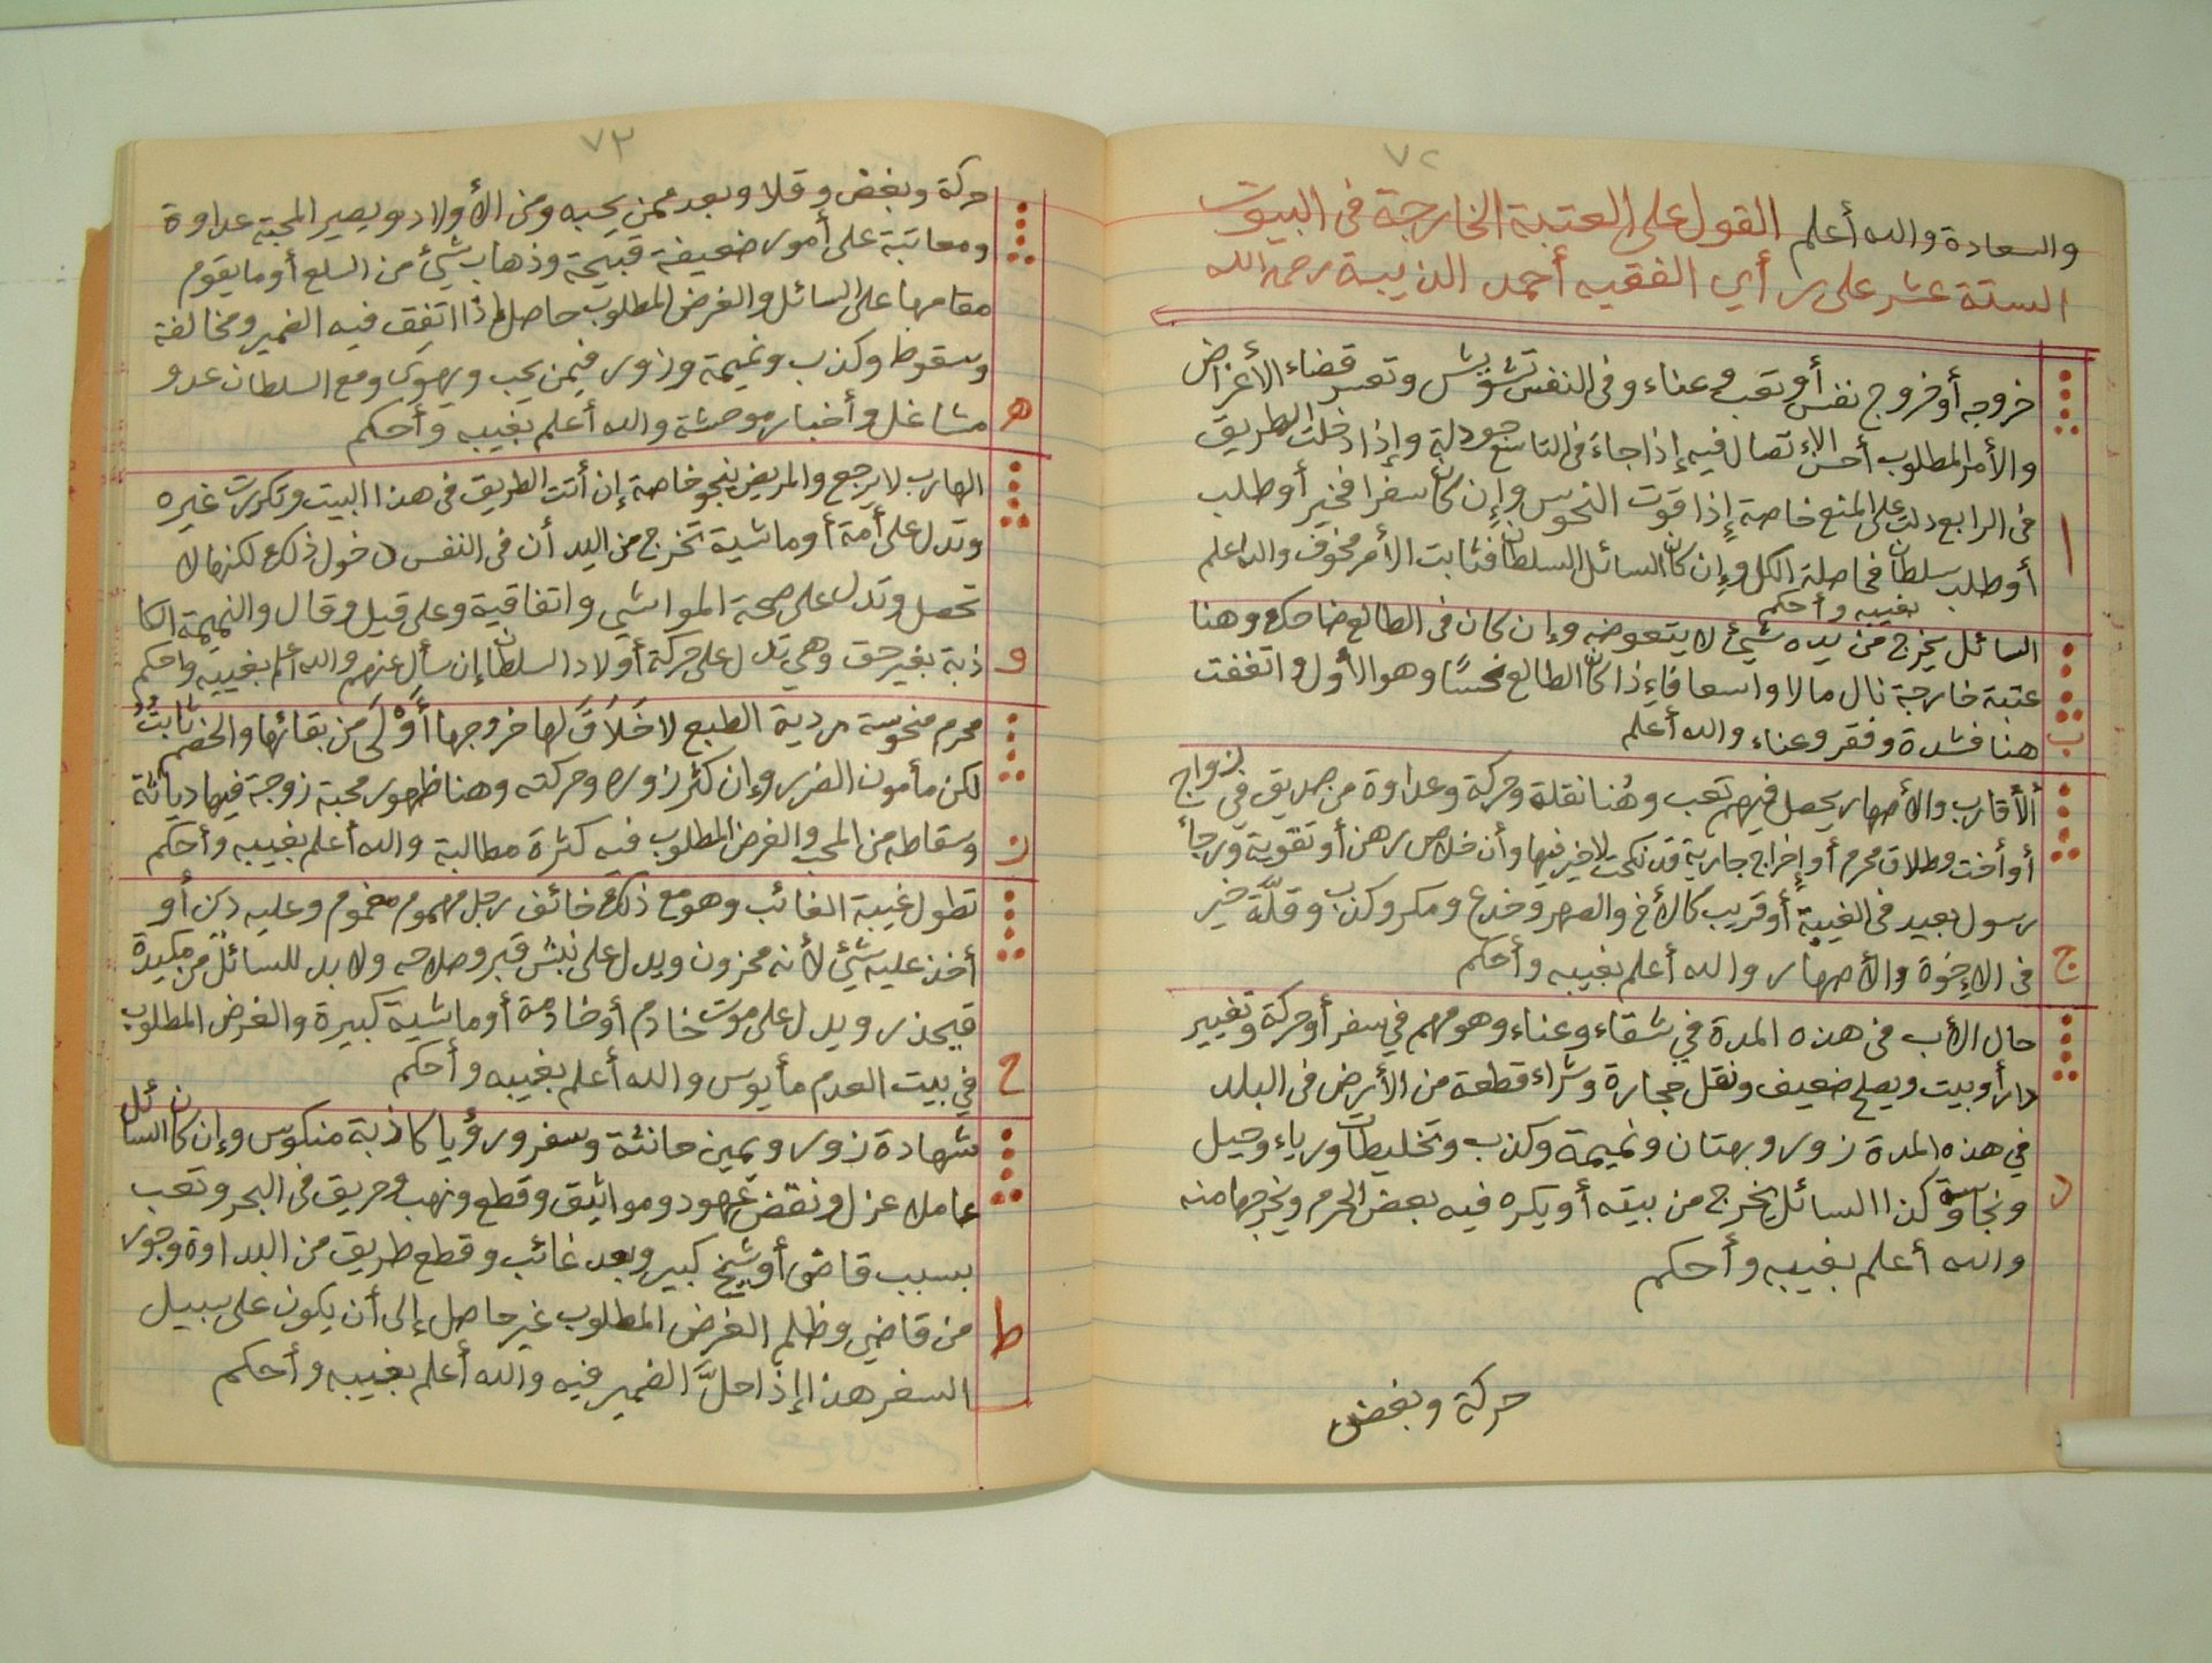 ٧٢
والسعادة والله أعلم القول على العتبة الخارجة فى البيوت
الستة عشر على رأي الفقيه أحمد الذيبة رحمه الله
خروجه أو خروج نفس أو تعب وعناء وفى النفس تشويش وتعسر قضاء الأغراض
والأمر المطلوب أحسن الاتصال فيه إذا جاءَ فى التاسع جودلة وإذا دخلت الطريق
فى الرابع دلت على المنع خاصة إذا قوت النحوس وإن كان سفرا فخير أو طلب
أو طلب سلطان فحاصلة الكل وإن كان السائل السلطان فثابت الأمر مخوف والله اعلم
بغيبه وأحكم
ا
السائل يخرج من يده شيئ لا يتعوضه وإن كان فى الطالع ضاحك وهنا
عتبة خارجة نال مالا واسعا فإذا كان الطالع نحسًا وهو الأول واتفقت
هنا فشدة وفقر وعناء والله أعلم
ب
ألأقارب والأصهار يحصل فيهم تعب وهُنا نقلة وحركة وعداوة من صديق في لزواج
أو أخت وطلاق محرم أو إخراج جارية قد نكحت لا خير فيها وأن خلاص رهن أو تقوية ورجاءً
رسول بعيد فى الغيبة أو قريب كالأخ والصهر وخدع ومكر وكذب وقلَّة خير
فى الإخوة والأصهار والله أعلم بغيبه وأحكم
ج
حال الأب فى هذه المدة في شقاء وعناء وهو مهم في سفر أو حركة وتغيير
دار أو بيت ويصلح ضعيف ونقل حجارة وشراء قطعة من الأرض فى البلد
في هذه المدة زور وبهتان ونميمة وكذب وتخليطات ورياء وحيل
ونجاسة كذا السائل يخرج من بيته أو يكره فيه بعض الحرم ويخرجها منه
والله أعلم بغيبه وأحكم
د
حركة وبغض
٧٣
حركة وبغض وقلا وبعد ممن يحبه ومن الأولاد ويصير المحبة عداوة
ومعاتبة على أمور ضعيفة قبيحة وذهاب شيئ من السلع أو ما يقوم
مقامها على السائل والغرض المطلوب حاصل إذا اتفق فيه الضمير ومخالفة
وسقوط وكذب ونميمة وزور فيمن يحب ويهوى ومع السلطان عدو
مشاغل وأخبار موحشة والله أعلم بغيبه وأحكم
ه
الهارب لا يرجع والمريض ينجو خاصة إن أتت الطريق فى هذا البيت وتكررت غيره
وتدل على أمة أو ماشية تخرج من اليد أن فى النفس دخول ذلك لكنها لا
تحصل وتدل على صحة المواشي واتفاقية وعلى قيل وقال والنميمة الكا
ذبة بغير حق وهي تدل على حركة أولاد السلطان إن سأل عنهم والله اعلم بغيبه واحكم
و
محرم منحوسة ردية الطبع لا خَلاَقَ لها خروجها أَوْلَى من بقائها والخصم ثابتٌ
لكن مأمون الضرر وإن كثر زوره وحركته وهنا ظهور محبة زوجة فيها دياثة
وسقاطه من المحب والغرض المطلوب فيه كثرة مطالبة والله أعلم بغيبه وأحكم
ز
تطول غيبة الغائب وهو مع ذلك خائف رجل مهموم مغموم وعليه دين أو
أخذ عليه شيئ لأنه محزون ويدل على نبش قبر وصلاحه ولا بد للسائل من مكيدة
فيحذر ويدل على موت خادم أو خادمة أو ماشية كبيرة والغرض المطلوب
في بيت العدم مأيوس والله أعلم بغيبه وأحكم
ح
شهادة زور ويمين حانثة وسفر ورؤيا كاذبة منكوس وإن كان السائل
عاملا عزل ونقض عهود ومواثيق وقطع ونهب وحريق فى البحر وتعب
بسبب قاضى أو شيخ كبير وبعد غائب وقطع طريق من البداوة وجور
من قاضي وظلم الغرض المطلوب غير حاصل إلى أن يكون على سبيل
السفر هذا إذا حلَّ الضمير فيه والله أعلم بغيبه وأحكم
ط